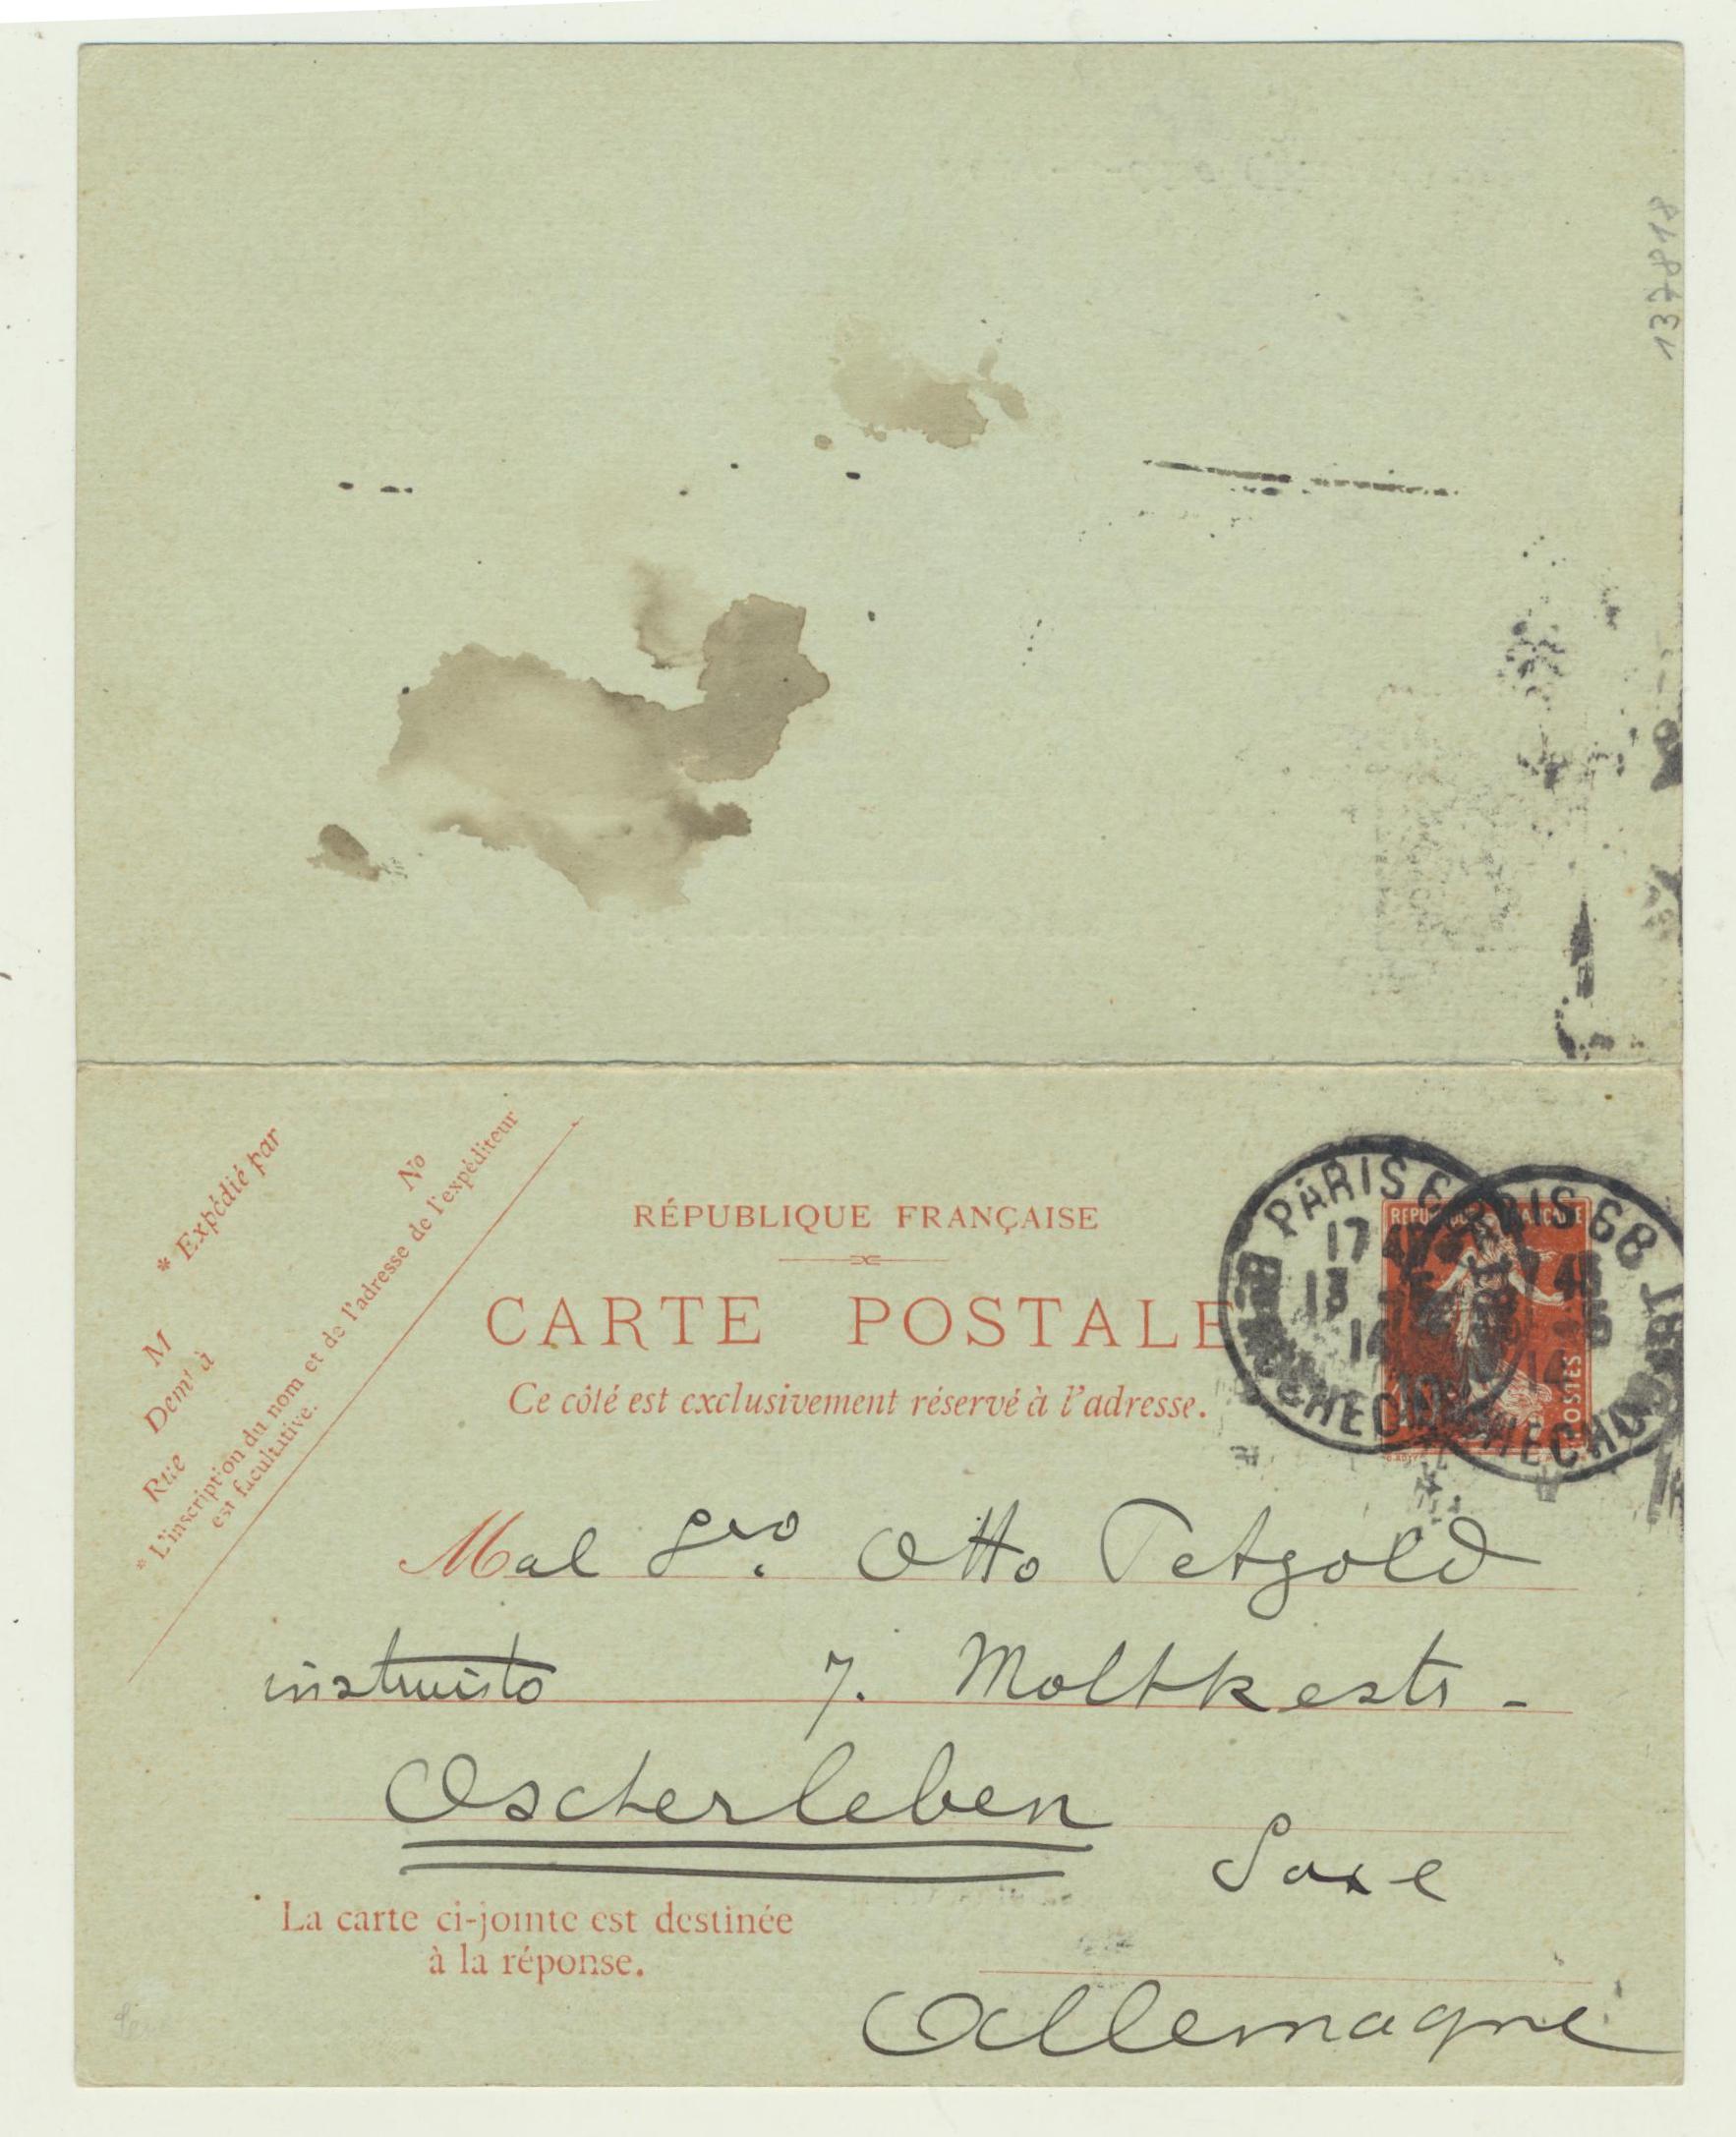 137818
* Expédié par
M
Demt à
Rue No
* L'inscription du nom et de l'adresse de l'expéditeur
est facultative.
RÉPUBLIQUE FRANÇAISE
CARTE POSTALE
Ce côté est exclusivement réservé à l'adresse.
PARIS 68
17 45
13 -5
14
POSTES
Mal Sro. Otto Petzold
instruisto 7. Moltkestr -
Oscherleben
Saxe
La carte ci-jointe est destinée
à la réponse.
Allemagne